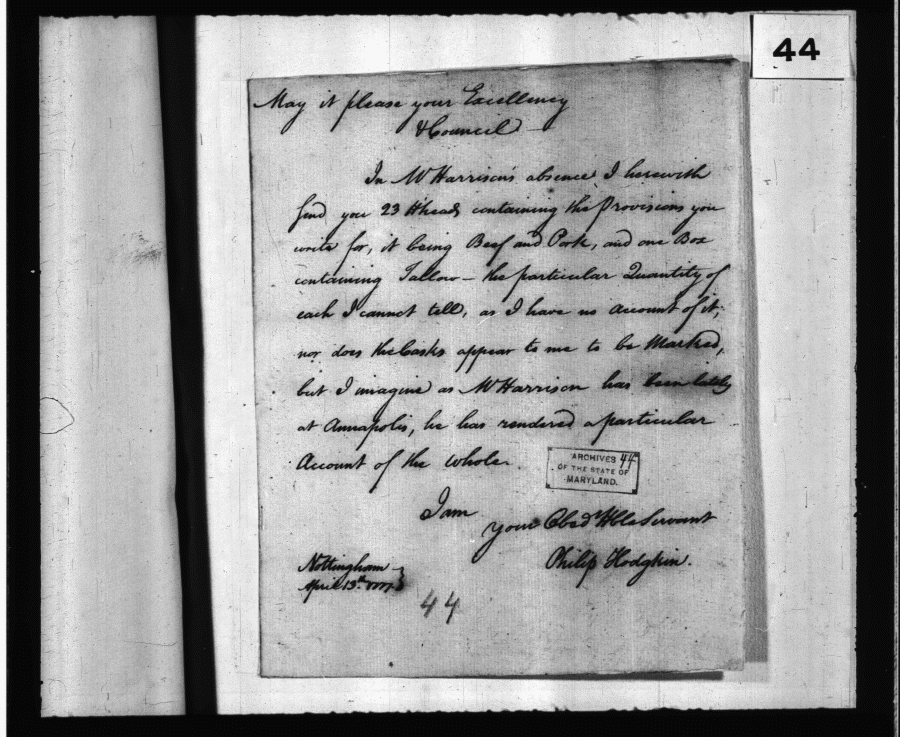 44
May it please your Excellency
& Council —
In Mr Harrison's absence I herewith
send you 23 Hheads containing the Provisions you
write for, it being Beef and Pork, and one Box
containing Tallow — the particular Quantity of
each I cannot tell, as I have no Account of it,
nor does the Casks appear to me to be Marked,
but I imagine as Mr Harrison has been lately
at Annapolis, he has rendered a particular
Account of the whole.
ARCHIVES 44
OF THE STATE OF
MARYLAND.
I am
your Obedt Hble Servant
Philip Hodgkin.
Nottingham
April 13th
44